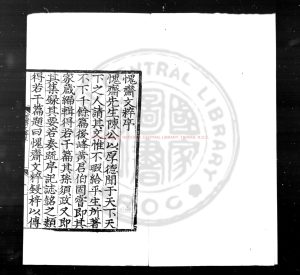 愧齋文粹序
愧齋先生陳公以厚德聞于天下天
下之人請其文惟不暇給平生所著
不下千餘篇後峰黃君伯固嘗即其
家歲緝得若干篇其孫須政又即
其集錄其要若奏疏序記誌銘之類
得若干篇題曰愧齋文粹鋟梓以傳